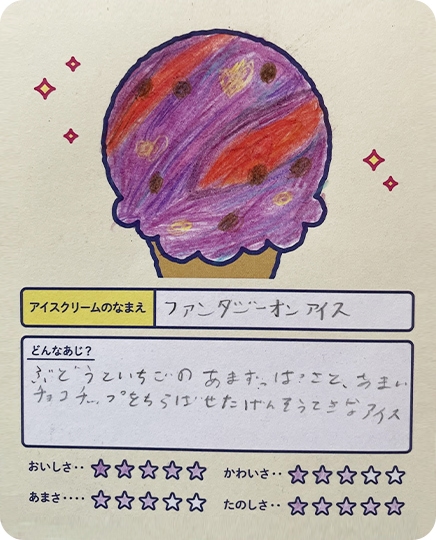 アイスクリームのなまえ ファンタジーオンアイス
どんなあじ?
ぶどうといちごのあまずっぱさと、あまい
チョコチップをちらばせたげんそうてきなアイス
おいしさ‥ ★★★★★ かわいさ‥ ★★★☆☆
あまさ‥‥ ★★★☆☆ たのしさ‥ ★★★★★